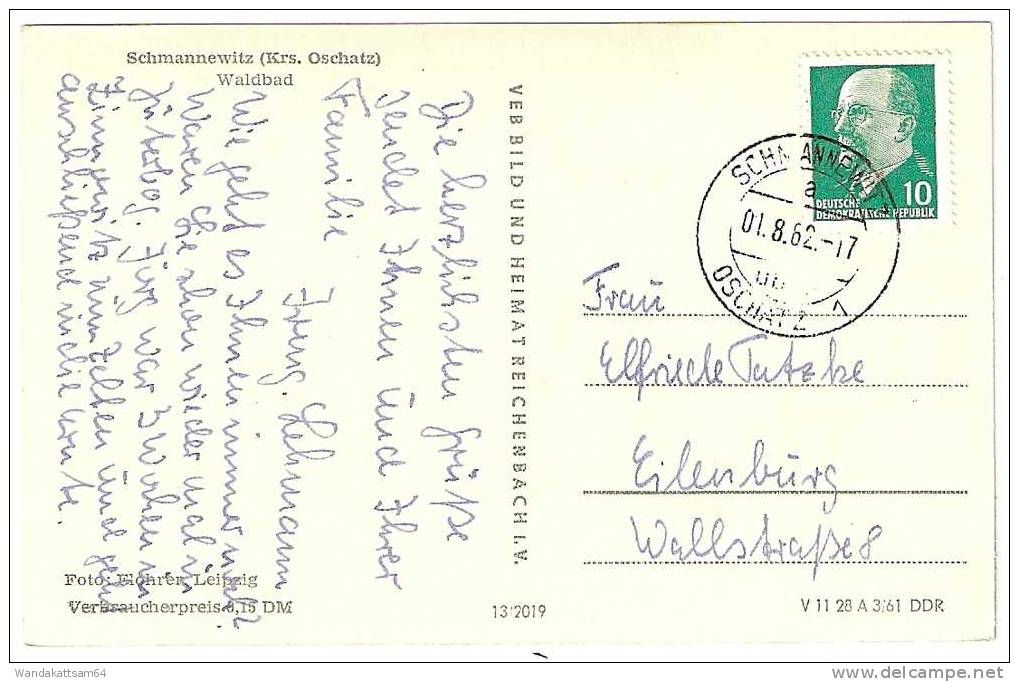 Schmannewitz (Krs. Oschatz)
Waldbad
Die herzlichsten Grüße
sendet Ihnen und Ihrer
Familie
Irmg. Lehmann
Wie geht es Ihnen immer noch?
Waren Sie schon wieder mal in
Jüterbog. Jürg war 3 Wochen in
zum Zelten und geht
anschließend in die
Foto: Leipzig
Verbraucherpreis 0,15 DM
VEB BILD UND HEIMAT REICHENBACH I. V.
13'2019
DEUTSCHE
DEMOKRATISCHE REPUBLIK
10
SCHMANNEWITZ
a
01.8.62.-17
OSCHATZ 1
Frau
Elfriede Tatzke
Eilenburg
Wallstraße 8
V 11 28 A 3/61 DDR
Wandakattsam64
delcampe.net